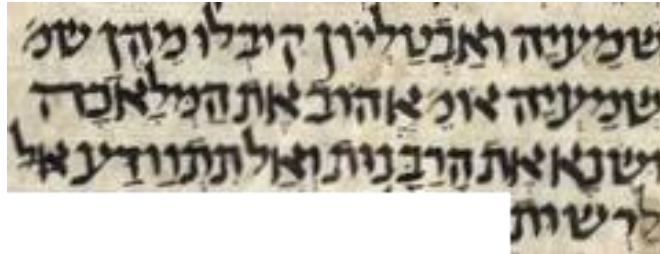 שמעיה ואבטליון קיבלו מהן שמ׳
שמעיה אומ׳ אהוב את המלאכה
ושנא את הרבנית ואל תתוודע אל
לרשות